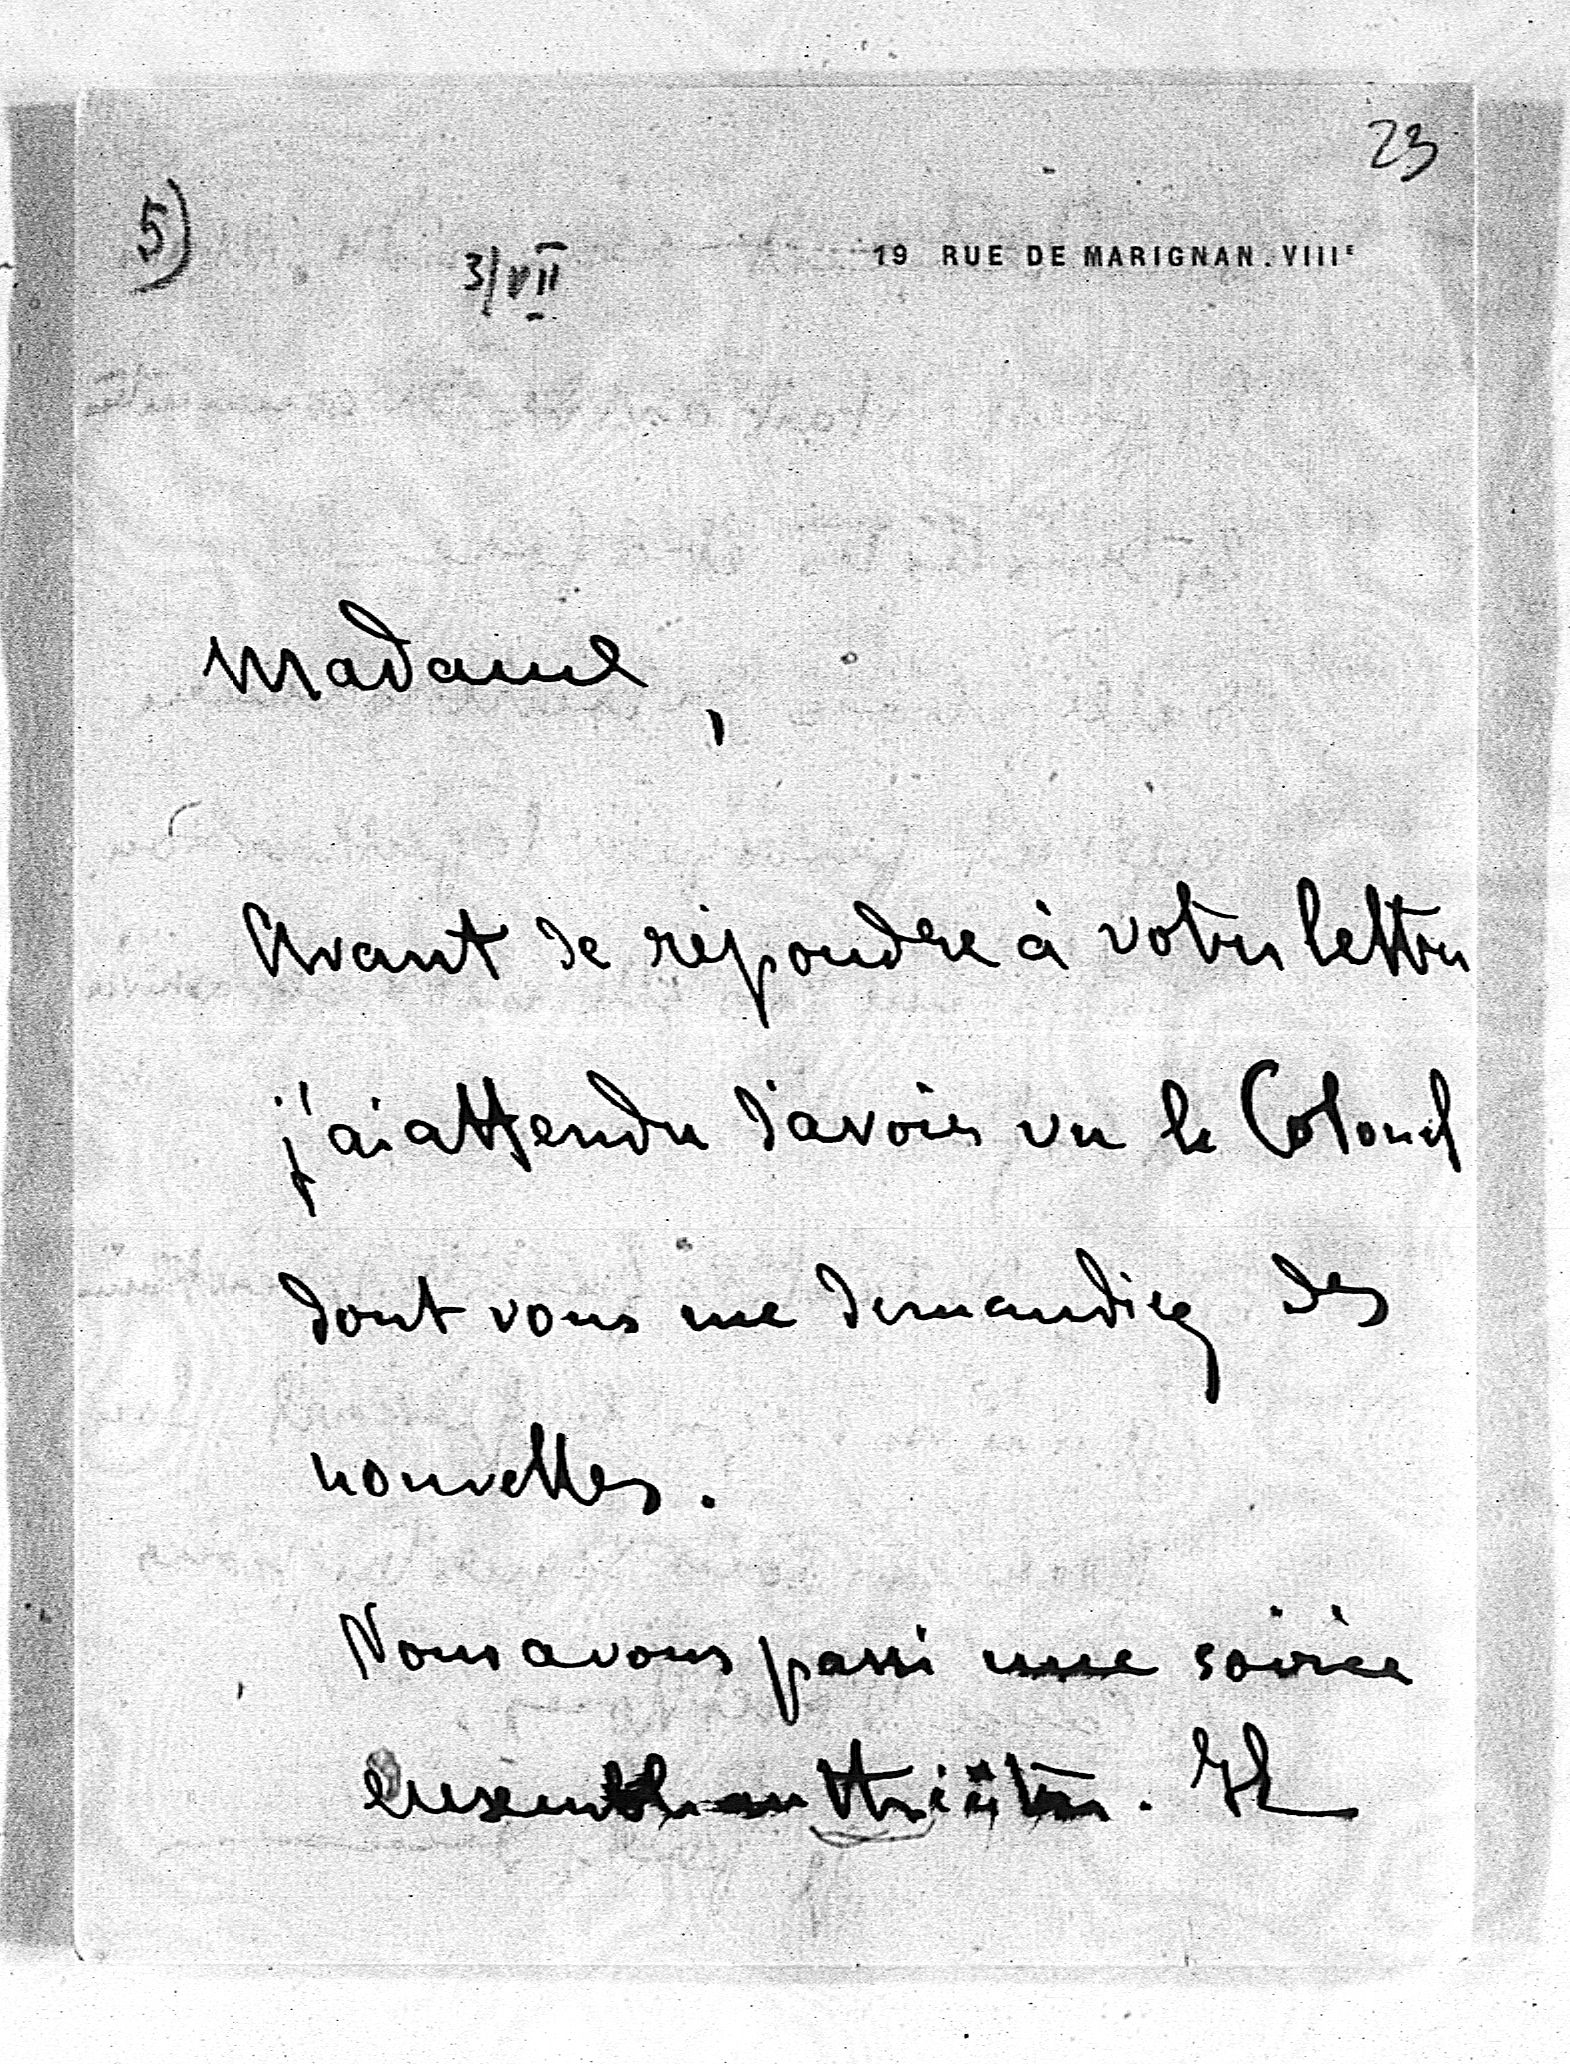 23
5)
3/VII
19 RUE DE MARIGNAN. VIIIE
Madame,
Avant de répondre à votre lettre
j'ai attendu d'avoir vu le Colonel
dont vous me demandiez des
nouvelles.
Nous avons passé une soirée
ensemble au théâtre. Il